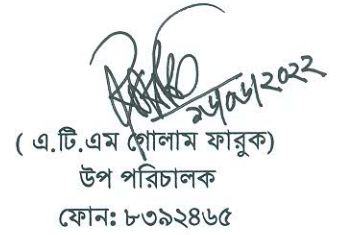 ২৬/০৬/২০২২
( এ.টি.এম গোলাম ফারুক)
উপ পরিচালক
ফোন: ৮৩৯২৪৬৫